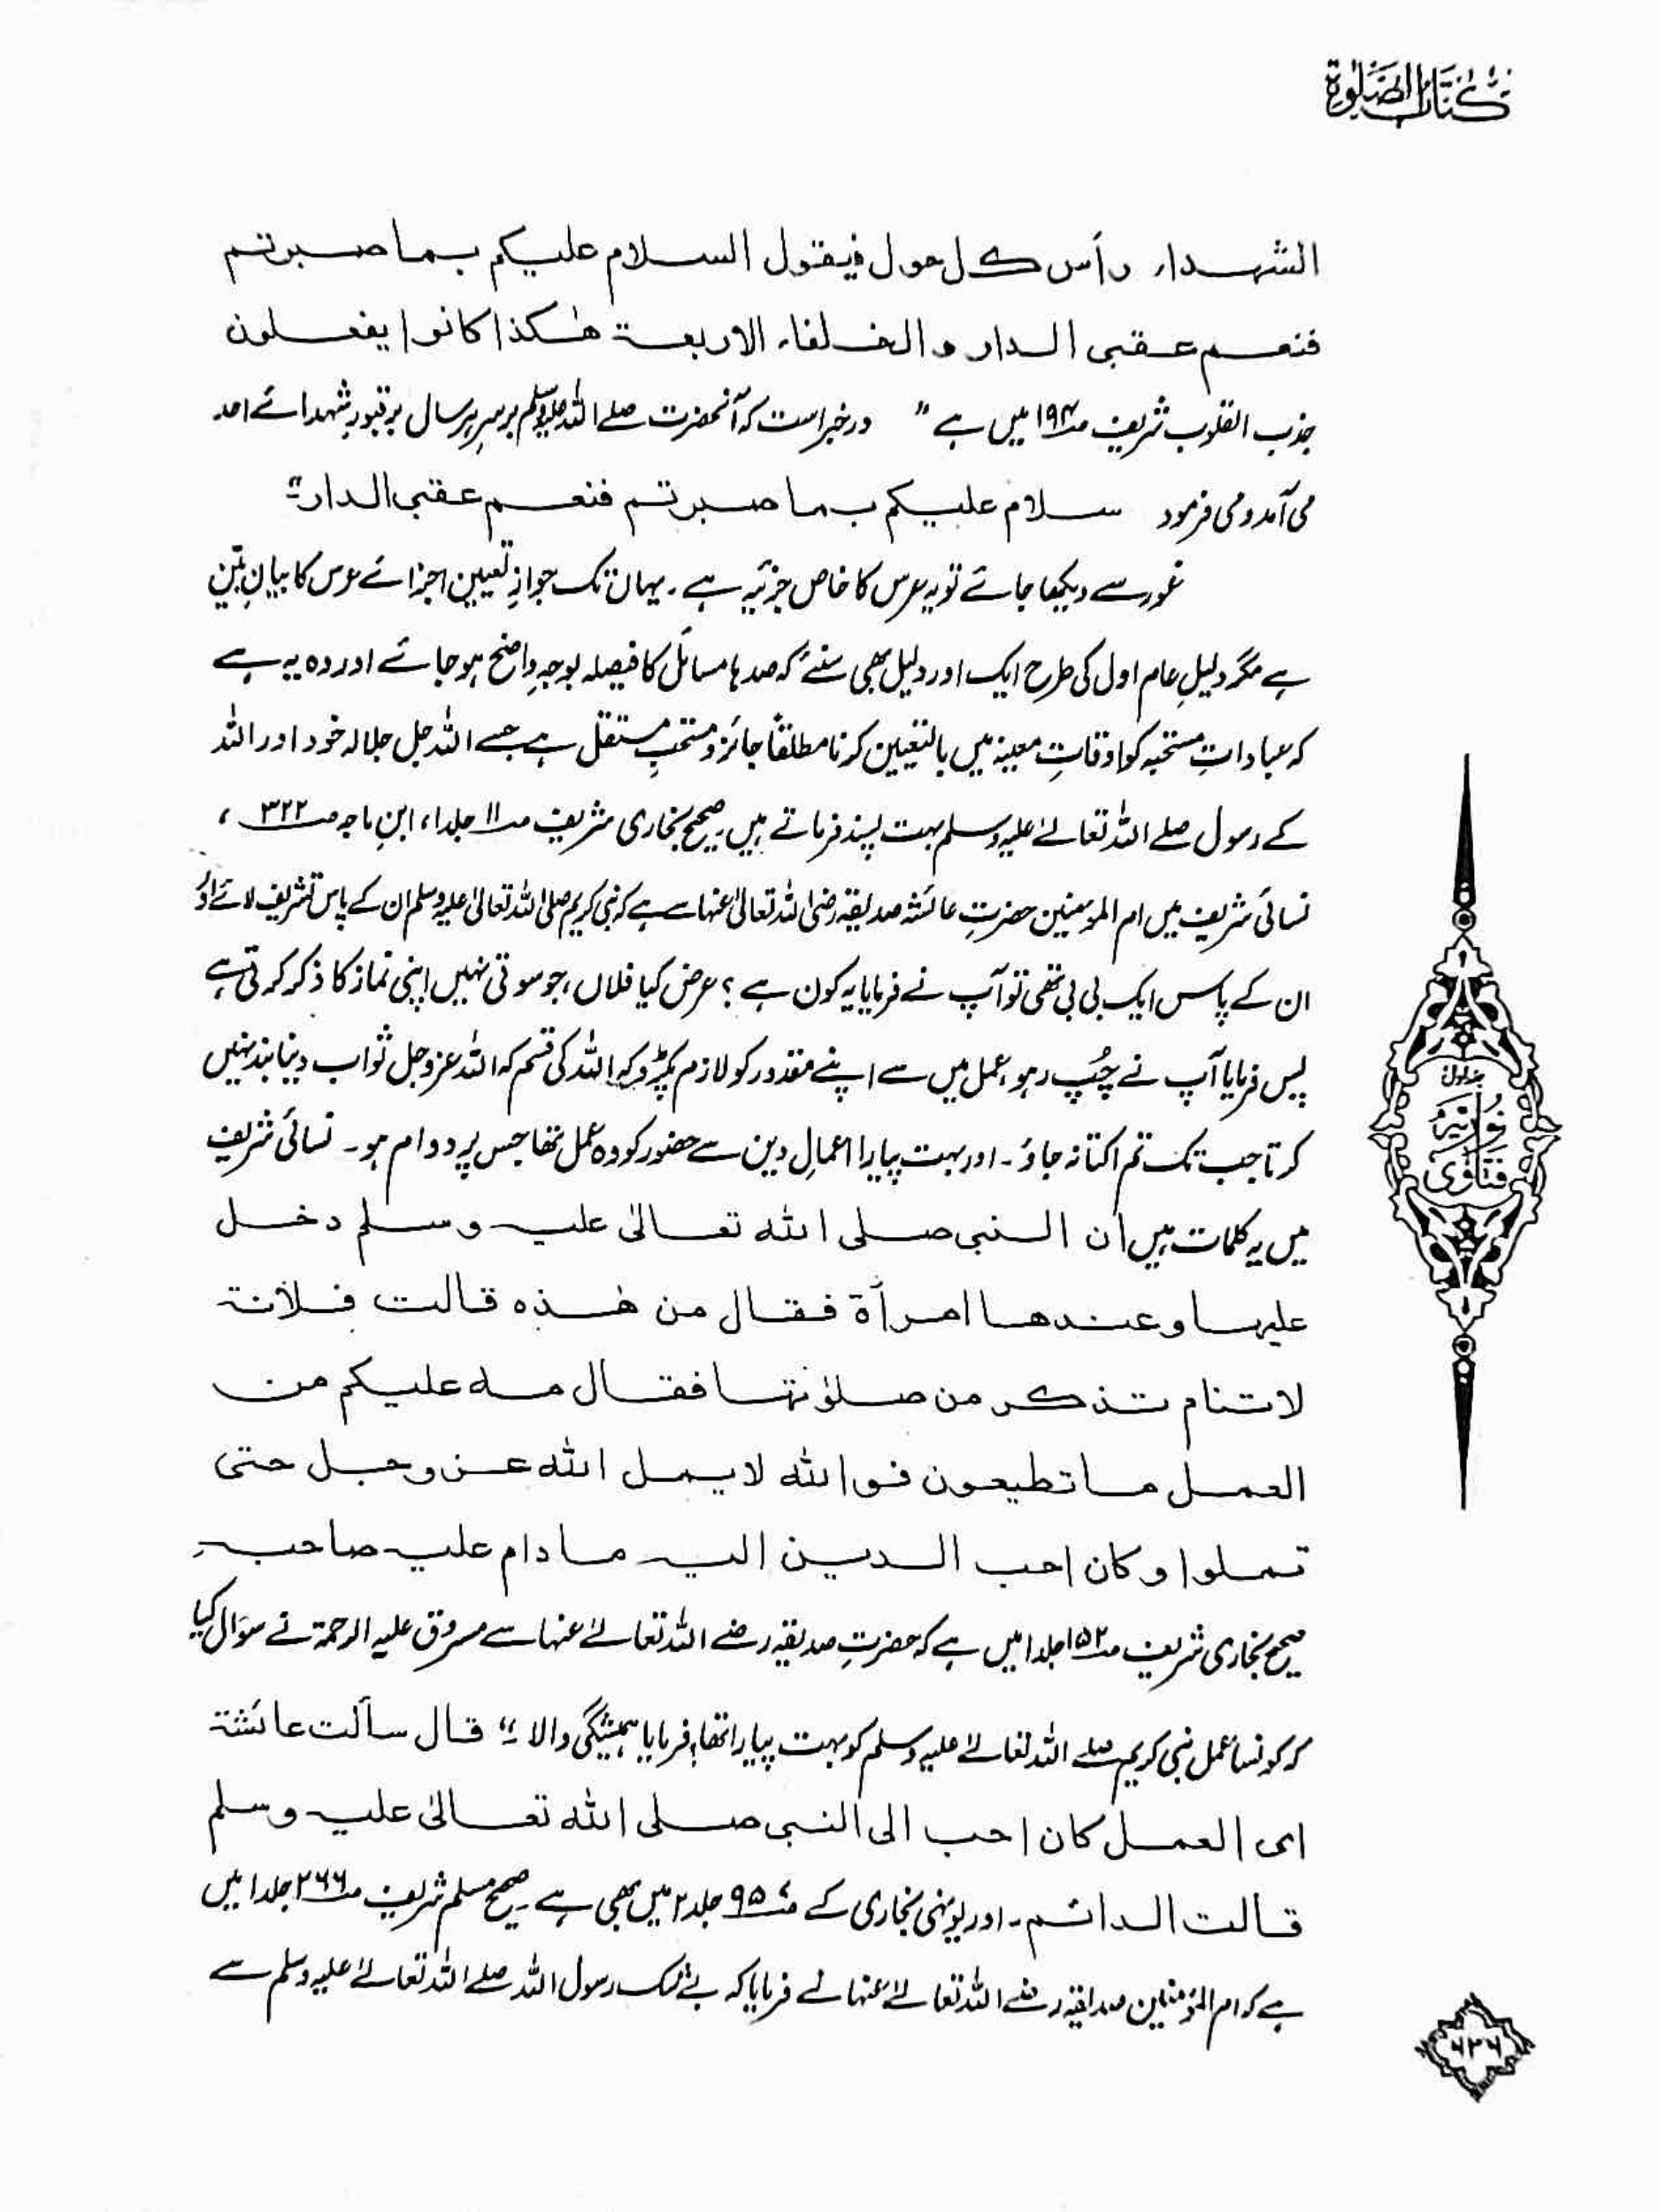 كتاب الصلوة
الشهداء رأس كل حول فيقول السلام عليكم بما صبرتم
فنعم عقبى الدار والخلفاء الاربعة هٰكذا كانوا يفعلون
جذب القلوب شریف صـ۱۹۴ میں ہے " درخبراست کہ آنحضرت صلے اللہ علیہ وسلم برسرِ ہر سال بر قبورِ شہدائے احد
می آمد و می فرمود سلام عليكم بما صبرتم فنعم عقبى الدار"
غور سے دیکھا جائے تو یہ عرس کا خاص جزئیہ ہے۔ یہاں تک جوازِ تعیین اجزائے عرس کا بیانِ بیّن
ہے مگر دلیلِ عام اول کی طرح ایک اور دلیل بھی سنئے کہ صدہا مسائل کا فیصلہ بوجہِ واضح ہوجائے اور وہ یہ ہے
کہ عباداتِ مستحبہ کو اوقاتِ معینہ میں بالتعیین کرنا مطلقًا جائز و مستحبِ مستقل ہے جسے اللہ جل جلالہ خود اور اللہ
کے رسول صلے اللہ تعالےٰ علیہ وسلم بہت پسند فرماتے ہیں۔ صحیح بخاری شریف صـ۱۱ جلد۱، ابنِ ماجہ صـ۳۲۲،
نسائی شریف میں ام المؤمنین حضرتِ عائشہ صدیقہ رضی اللہ تعالیٰ عنہا سے ہے کہ نبی کریم صلی اللہ تعالیٰ علیہ وسلم ان کے پاس تشریف لائے اور
ان کے پاس ایک بی بی تھی تو آپ نے فرمایا یہ کون ہے؟ عرض کیا فلاں، جو سوتی نہیں اپنی نماز کا ذکر کرتی ہے
پس فرمایا آپ نے چُپ رہو، عمل میں سے اپنے مقدور کو لازم پکڑو کہ اللہ کی قسم کہ اللہ عزوجل ثواب دینا بند نہیں
کرتا جب تک تم اکتا نہ جاؤ۔ اور بہت پیارا اعمالِ دین سے حضور کو وہ عمل تھا جس پر دوام ہو۔ نسائی شریف
میں یہ کلمات ہیں ان النبى صلى الله تعالىٰ عليه وسلم دخل
عليها وعندها امرأة فقال من هٰذه قالت فلانة
لا تنام تذكر من صلوٰتها فقال مه عليكم من
العمل ما تطيعون فوالله لا يمل الله عزوجل حتى
تملوا وكان احب الدين اليه ما دام عليه صاحبه
صحیح بخاری شریف صـ۱۵۲ جلد۱ میں ہے کہ حضرتِ صدیقہ رضے اللہ تعالےٰ عنہا سے مسروق علیہ الرحمۃ نے سوال کیا
کہ کونسا عمل نبی کریم صلے اللہ تعالےٰ علیہ وسلم کو بہت پیارا تھا، فرمایا ہمیشگی والا۔" قال سألت عائشة
اى العمل كان احب الى النبى صلى الله تعالىٰ عليه وسلم
قالت الدائم۔ اور یونہی بخاری کے صـ۹۵۷ جلد۲ میں بھی ہے۔ صحیح مسلم شریف صـ۲۶۶ جلد۱ میں
ہے کہ ام المؤمنین صدیقہ رضے اللہ تعالےٰ عنہا نے فرمایا کہ بے شک رسول اللہ صلے اللہ تعالےٰ علیہ وسلم سے
جلد اول
نوریہ
فتاوی
۶۲۶